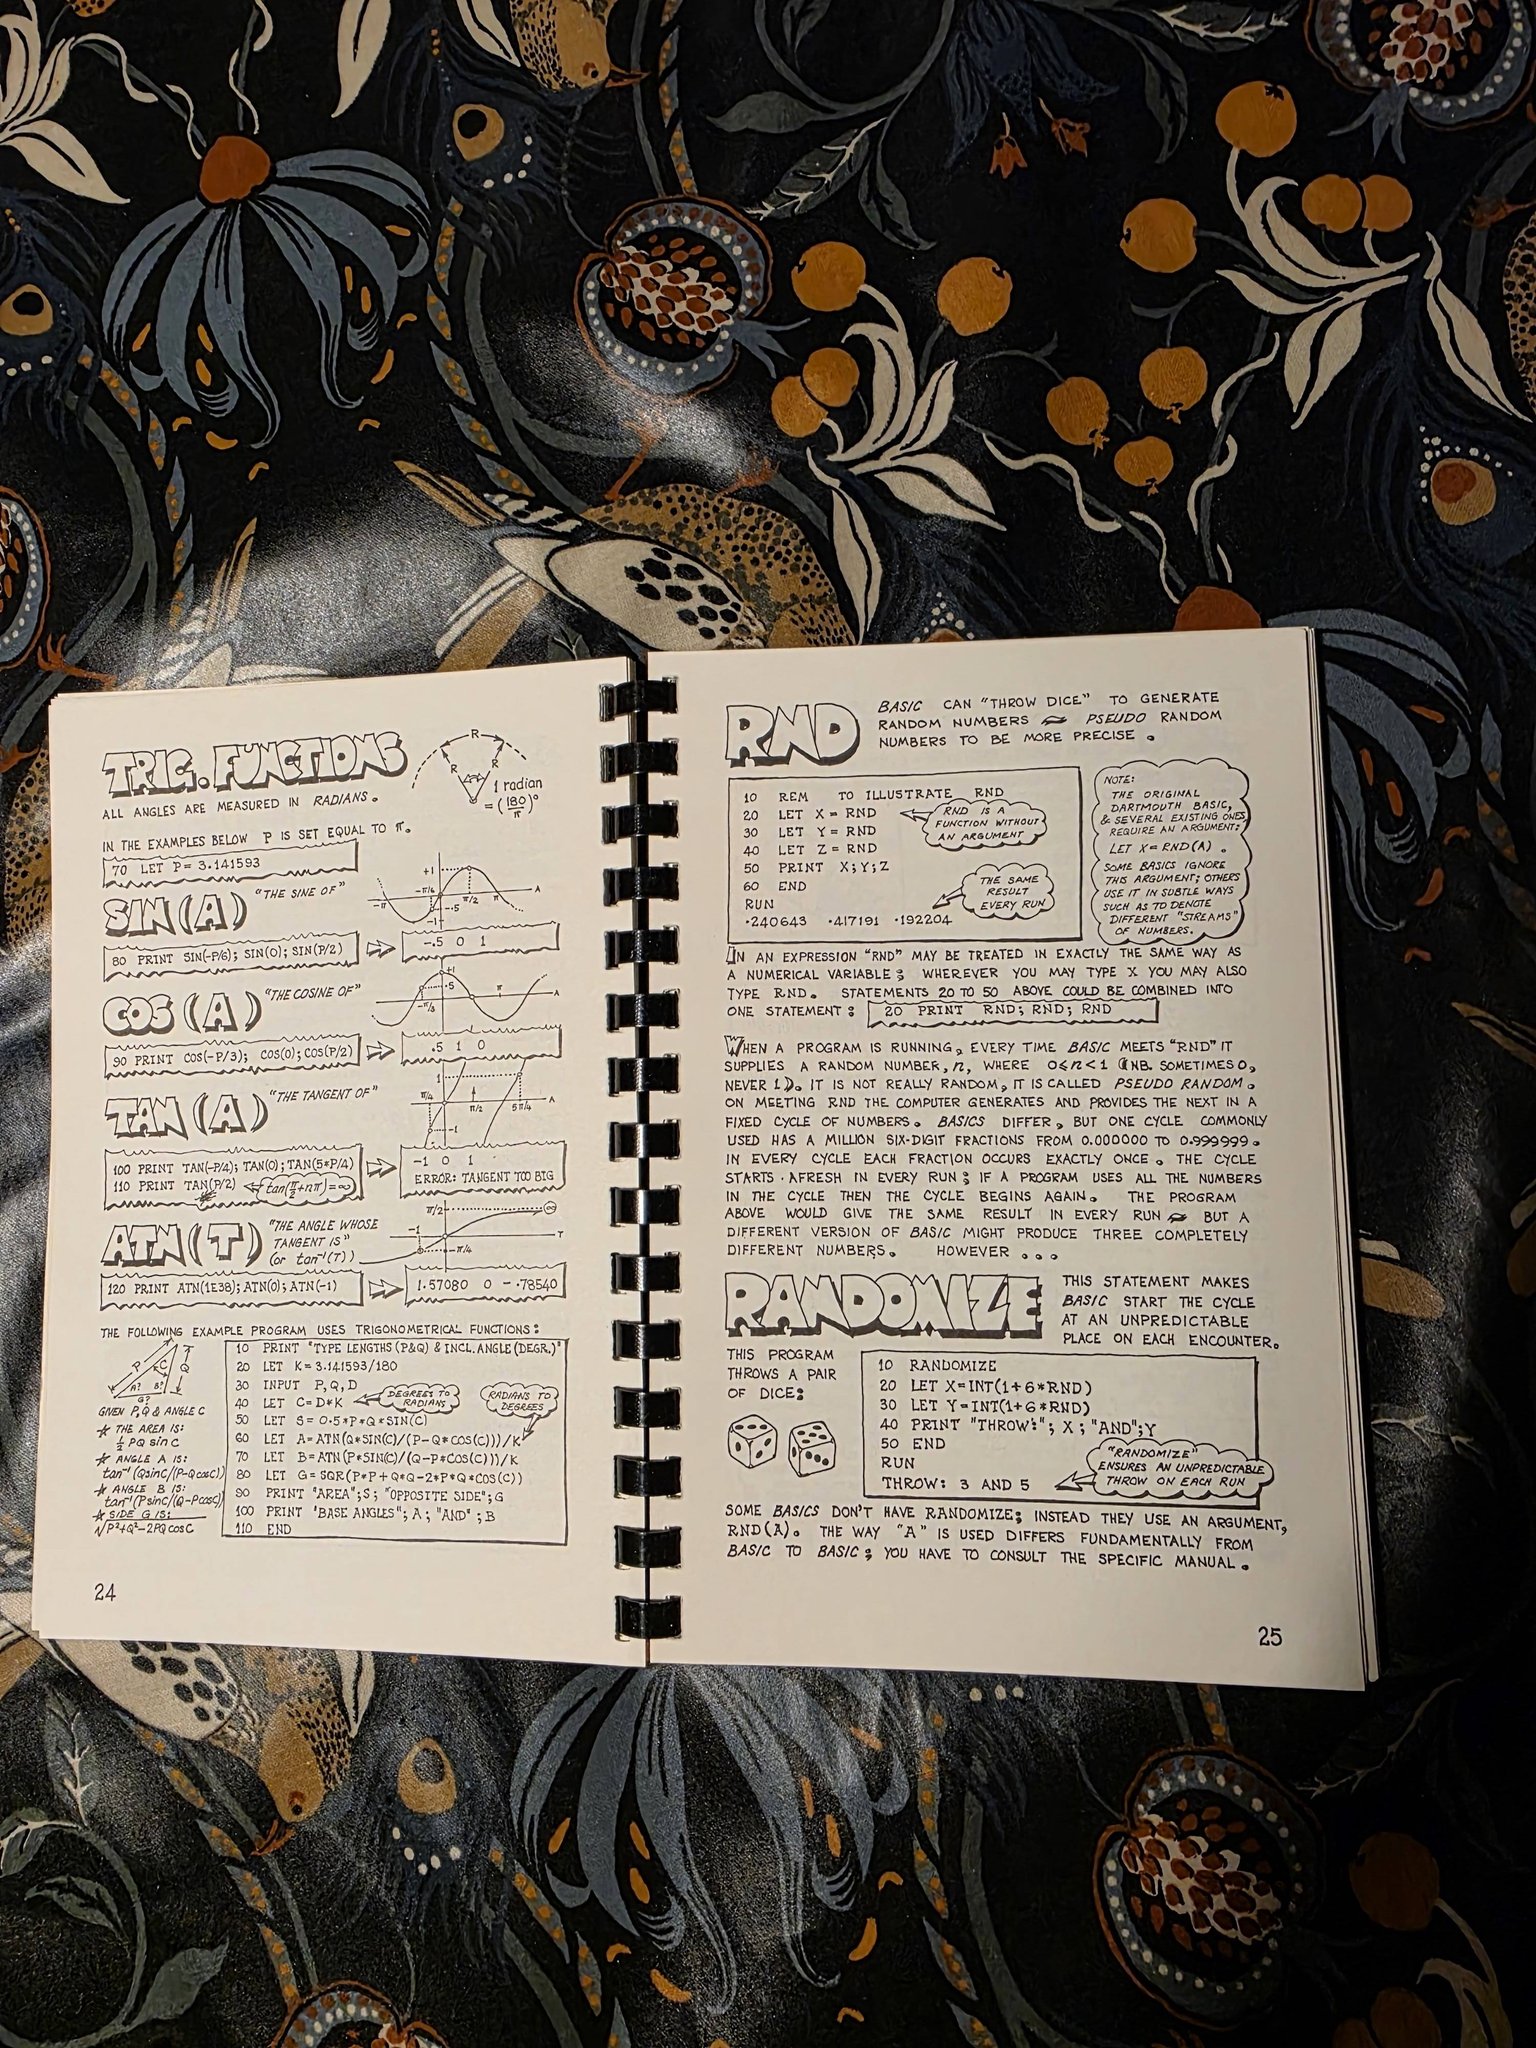 TRIG. FUNCTIONS
ALL ANGLES ARE MEASURED IN RADIANS.
R
R R
1 radian
= (180/π)°
IN THE EXAMPLES BELOW P IS SET EQUAL TO π.
70 LET P = 3.141593
SIN(A) "THE SINE OF"
+1
-π -π/6 π/2 π A
-.5
-1
80 PRINT SIN(-P/6); SIN(0); SIN(P/2)
-.5 0 1
COS(A) "THE COSINE OF"
+1
.5
-π/3 π A
90 PRINT COS(-P/3); COS(0); COS(P/2)
.5 1 0
TAN(A) "THE TANGENT OF"
1
π/4 π/2 5π/4 A
-1
100 PRINT TAN(-P/4); TAN(0); TAN(5*P/4)
110 PRINT TAN(P/2) tan(π/2+nπ)=∞
-1 0 1
ERROR: TANGENT TOO BIG
ATN(T) "THE ANGLE WHOSE
TANGENT IS"
(or tan⁻¹(T))
π/2 ∞
-1 T
-π/4
120 PRINT ATN(1E38); ATN(0); ATN(-1)
1.57080 0 -.78540
THE FOLLOWING EXAMPLE PROGRAM USES TRIGONOMETRICAL FUNCTIONS:
P C Q
A? B?
G?
GIVEN P,Q & ANGLE C
* THE AREA IS:
½ PQ sin C
* ANGLE A IS:
tan⁻¹(QsinC/(P-QcosC))
* ANGLE B IS:
tan⁻¹(PsinC/(Q-PcosC))
* SIDE G IS:
√P²+Q²-2PQcosC
10 PRINT "TYPE LENGTHS (P&Q) & INCL. ANGLE (DEGR.)"
20 LET K = 3.141593/180
30 INPUT P, Q, D
40 LET C = D*K
DEGREES TO
RADIANS
RADIANS TO
DEGREES
50 LET S = 0.5*P*Q*SIN(C)
60 LET A = ATN(Q*SIN(C)/(P-Q*COS(C)))/K
70 LET B = ATN(P*SIN(C)/(Q-P*COS(C)))/K
80 LET G = SQR(P*P+Q*Q-2*P*Q*COS(C))
90 PRINT "AREA"; S; "OPPOSITE SIDE"; G
100 PRINT "BASE ANGLES"; A; "AND"; B
110 END
24
RND
BASIC CAN "THROW DICE" TO GENERATE
RANDOM NUMBERS ~ PSEUDO RANDOM
NUMBERS TO BE MORE PRECISE.
10 REM TO ILLUSTRATE RND
20 LET X = RND
30 LET Y = RND
40 LET Z = RND
50 PRINT X; Y; Z
60 END
RUN
.240643 .417191 .192204
RND IS A
FUNCTION WITHOUT
AN ARGUMENT
THE SAME
RESULT
EVERY RUN
NOTE:
THE ORIGINAL
DARTMOUTH BASIC,
& SEVERAL EXISTING ONES,
REQUIRE AN ARGUMENT:
LET X = RND(A).
SOME BASICS IGNORE
THIS ARGUMENT; OTHERS
USE IT IN SUBTLE WAYS
SUCH AS TO DENOTE
DIFFERENT "STREAMS"
OF NUMBERS.
IN AN EXPRESSION "RND" MAY BE TREATED IN EXACTLY THE SAME WAY AS
A NUMERICAL VARIABLE; WHEREVER YOU MAY TYPE X YOU MAY ALSO
TYPE RND. STATEMENTS 20 TO 50 ABOVE COULD BE COMBINED INTO
ONE STATEMENT: 20 PRINT RND; RND; RND
WHEN A PROGRAM IS RUNNING, EVERY TIME BASIC MEETS "RND" IT
SUPPLIES A RANDOM NUMBER, n, WHERE 0≤n<1 (NB. SOMETIMES 0,
NEVER 1). IT IS NOT REALLY RANDOM, IT IS CALLED PSEUDO RANDOM.
ON MEETING RND THE COMPUTER GENERATES AND PROVIDES THE NEXT IN A
FIXED CYCLE OF NUMBERS. BASICS DIFFER, BUT ONE CYCLE COMMONLY
USED HAS A MILLION SIX-DIGIT FRACTIONS FROM 0.000000 TO 0.999999.
IN EVERY CYCLE EACH FRACTION OCCURS EXACTLY ONCE. THE CYCLE
STARTS AFRESH IN EVERY RUN; IF A PROGRAM USES ALL THE NUMBERS
IN THE CYCLE THEN THE CYCLE BEGINS AGAIN. THE PROGRAM
ABOVE WOULD GIVE THE SAME RESULT IN EVERY RUN ~ BUT A
DIFFERENT VERSION OF BASIC MIGHT PRODUCE THREE COMPLETELY
DIFFERENT NUMBERS. HOWEVER ...
RANDOMIZE
THIS STATEMENT MAKES
BASIC START THE CYCLE
AT AN UNPREDICTABLE
PLACE ON EACH ENCOUNTER.
THIS PROGRAM
THROWS A PAIR
OF DICE:
10 RANDOMIZE
20 LET X=INT(1+6*RND)
30 LET Y=INT(1+6*RND)
40 PRINT "THROW:"; X; "AND"; Y
50 END
RUN
THROW: 3 AND 5
"RANDOMIZE"
ENSURES AN UNPREDICTABLE
THROW ON EACH RUN
SOME BASICS DON'T HAVE RANDOMIZE; INSTEAD THEY USE AN ARGUMENT,
RND(A). THE WAY "A" IS USED DIFFERS FUNDAMENTALLY FROM
BASIC TO BASIC; YOU HAVE TO CONSULT THE SPECIFIC MANUAL.
25